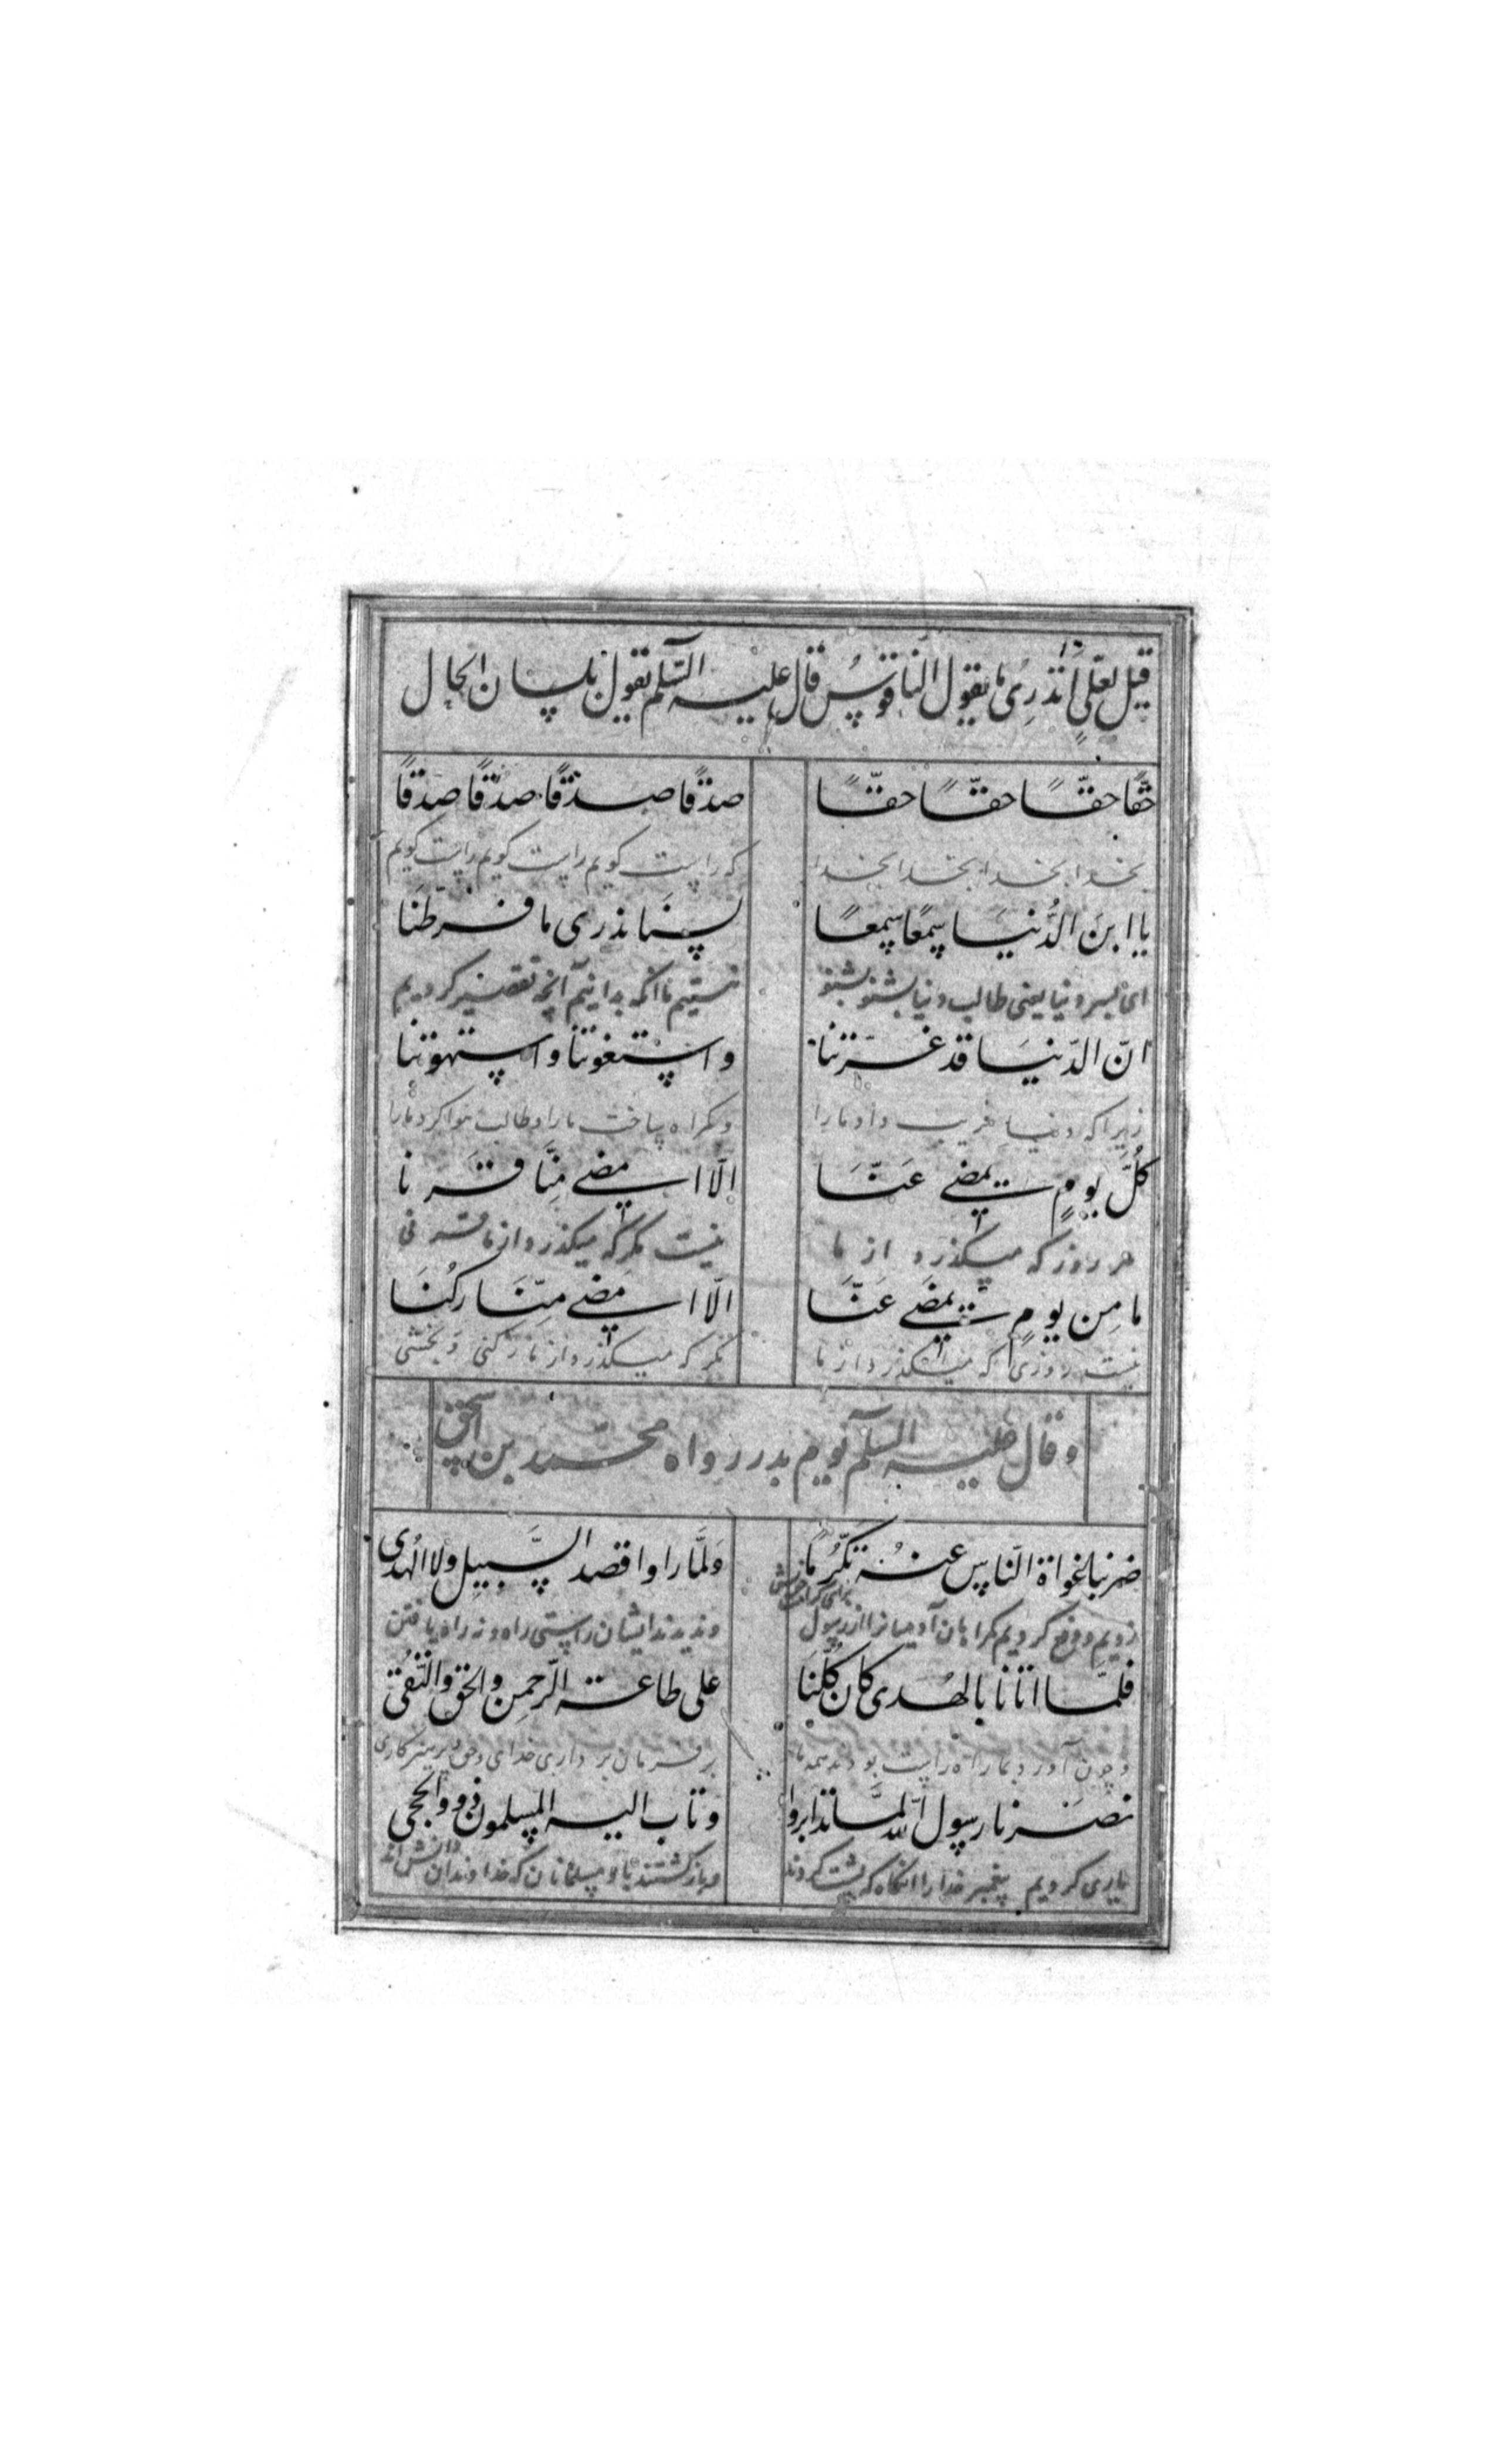 قیل لعلیٍ أتدری ما یقول الناقوس قال علیه السلم یقول بلسان الحال
حقًا حقًّا حقًّا حقًّا صدقًا صدقًا صدقًا صدقًا
بخدا بخدا بخدا بخدا که راست کویم راست کویم راست کویم
یا ابنَ الدُّنیَا سمعًا سمعًا لسنَا ندری ما فرطنَا
ای پسر دنیا یعنی طالب دنیا بشنو بشنو نیستیم ما انکه بدانیم آنچه تقصیر کردیم
انّ الدّنیَا قد غرّتنا واستغوتنا واستهوتنا
زیرا که دنیا فریب داد ما را و کمراه ساخت ما را و طالب هوا کرد ما را
کلُّ یومٍ یمضے عَنَّا الّا یمضے مِنَّا قرنا
هر روز که میکذرد از ما نیست مکر که میکذرد از ما قرنی
ما مِن یومٍ یمضے عَنَّا الّا یمضے مِنّا رکُنَا
نیست روزی که میکذرد از ما مکر که میکذرد از ما رکنی و بخشی
و قال علیه السلم یوم بدر رواه محمّد بن اسحق
ضربنا غواة النّاس عنهُ تکرُّمًا وَلمَّا راوا قصد السَّبیلِ ولا الهُدی
زدیم و دفع کردیم کمراهان آدمیانرا از رسول برای و ندیدند ایشان راستی راه و نه راه یافتن
فلمّا اتانا بالهُدی کان کُلّنَا علی طاعة الرّحمنِ والحق والتُّقی
و چون آورد بما راه راست بودند همه ما بر فرمان برداری خدای و حق و پرهیزکاری
نصَرنا رسول اللّه لمَّا تدابروا وثاب الیه المسلمون ذوو الحجی
یاری کردیم پیغمبر خدا را انکاه که پشت کردند و بازکشتند با و مسلمانان که خداوندان دانش اند